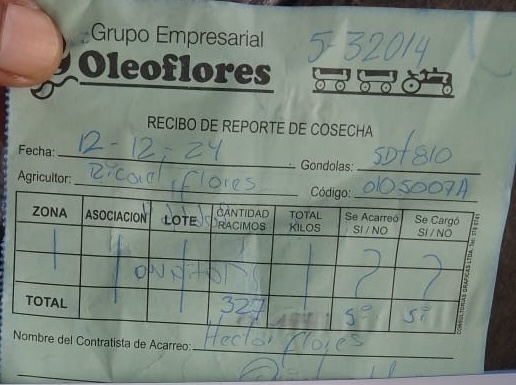 Grupo Empresarial
Oleoflores
5-32014
RECIBO DE REPORTE DE COSECHA
Fecha: 12-12-24 Gondolas: SDT810
Agricultor: Ricard Flores Código: 0105007A
ZONA ASOCIACION LOTE CANTIDAD RACIMOS TOTAL KILOS Se Acarreó SI / NO Se Cargó SI / NO
TOTAL 327 si si
Nombre del Contratista de Acarreo: Hector flores